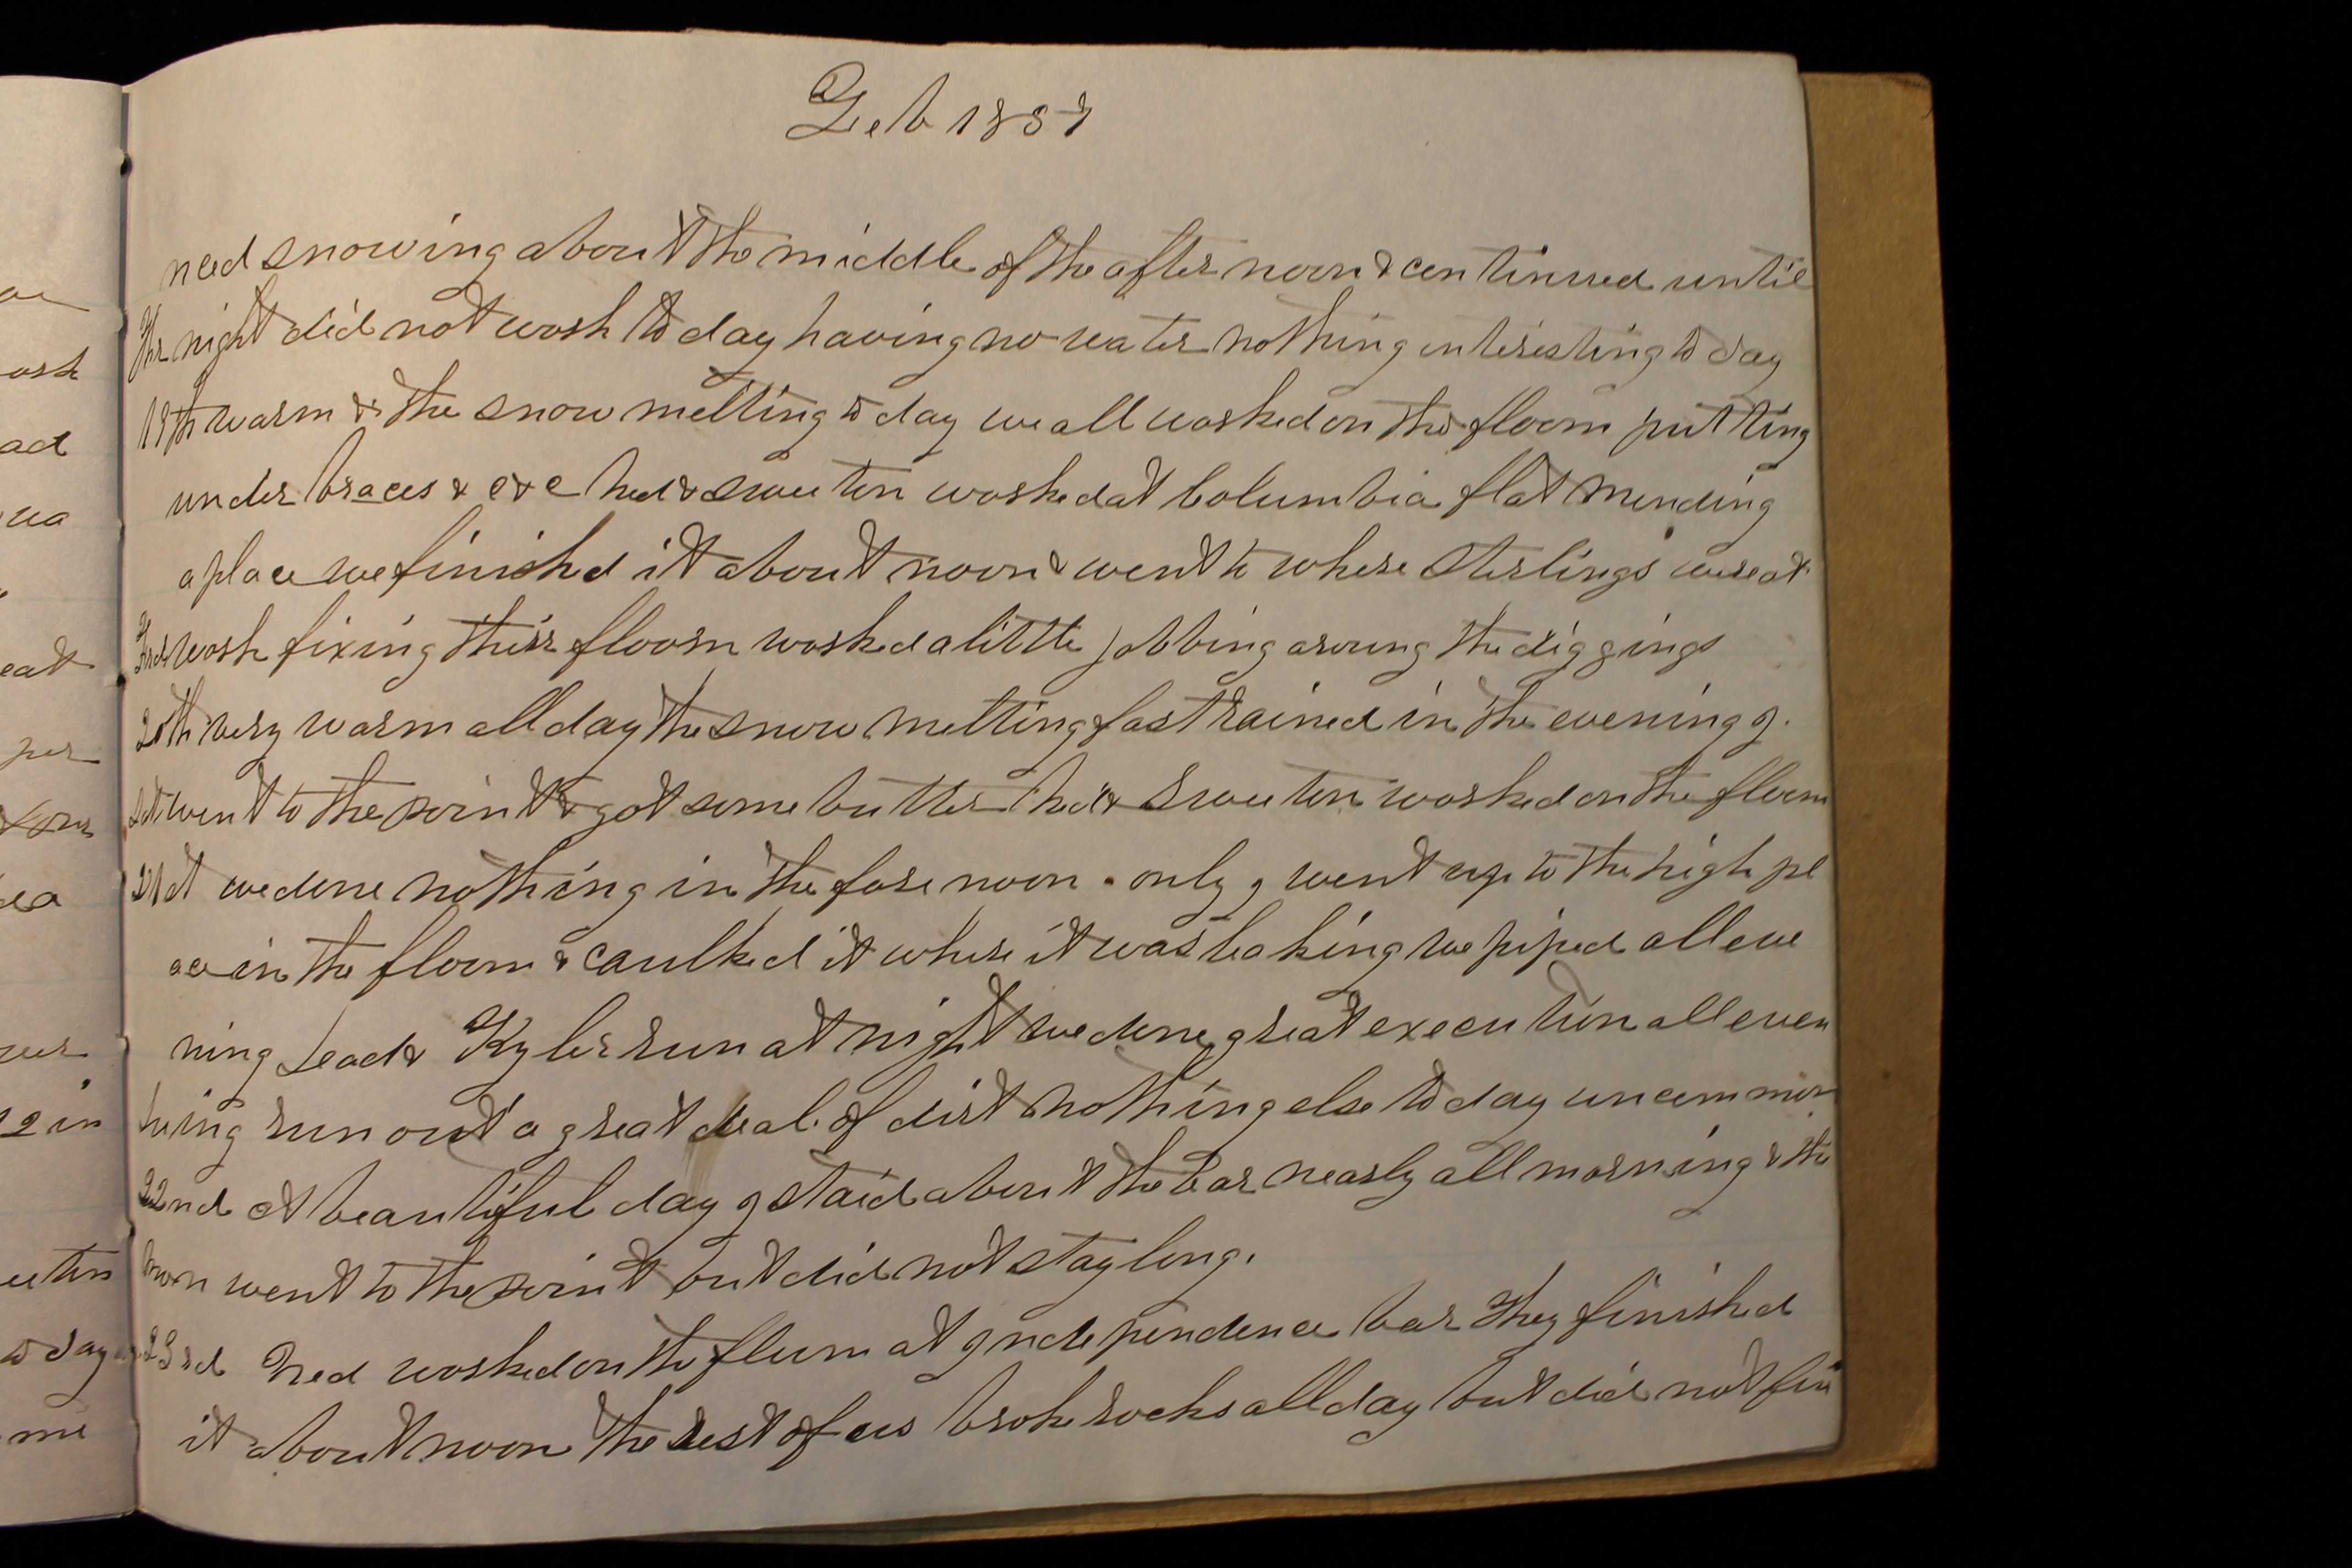 Feb 1857
need snowing about the middle of the after noon & continued until
Thr night did not work to day having no water nothing interesting to day
19th warm & the snow melting to day we all worked on the floom putting
under braces & c & c Ned & Sweeten worked at Columbia flat mending
a place we finished it about noon & went to where Sterlings were at
Frd work fixing their floom worked a little jobbing aroung the diggings
20th very warm all day the snow melting fast rained in the evening I.
Sat went to the point & got some butter Ned & Sweeten worked on the floom
21st we done nothing in the fore noon . only I went up to the high pl
ace in the floom & caulked it where it was leaking we piped all eve
ning Lead & Kyler run at night we done great execution all even
hing run out a great deal of dirt nothing else to day uncommon
22nd A beautiful day I staid about the bar nearly all morning & the
went to the point but did not stay long.
23rd Ned worked on the flum at Independence bar They finished
it about noon the rest of us broke rocks all day but did not fin
ork
ad
wa
eat
per
2 in
eeten
to day
me